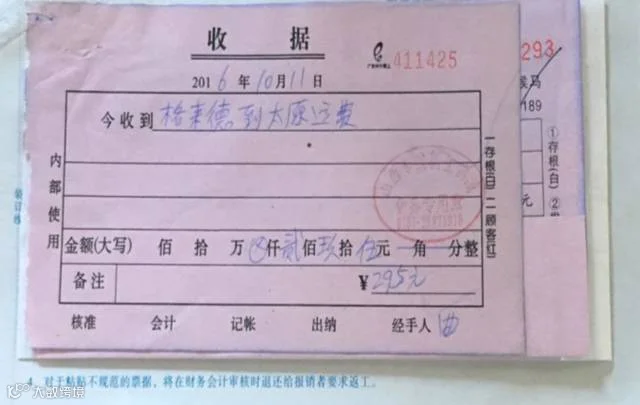 收 据
411425
2016年10月11日
今收到 格来德到太原运费
金额(大写) 佰 拾 万 ⊗仟贰佰玖拾伍元 角 分整
备注 ¥ 295元
核准 会计 记帐 出纳 经手人
内部使用
一存根(白) 二顾客(红)
293
候马
189
①存根(白) ②
元
装订线
4、对于粘贴不规范的票据，将在财务会计审核时退还给报销者要求返工。
大数跨境